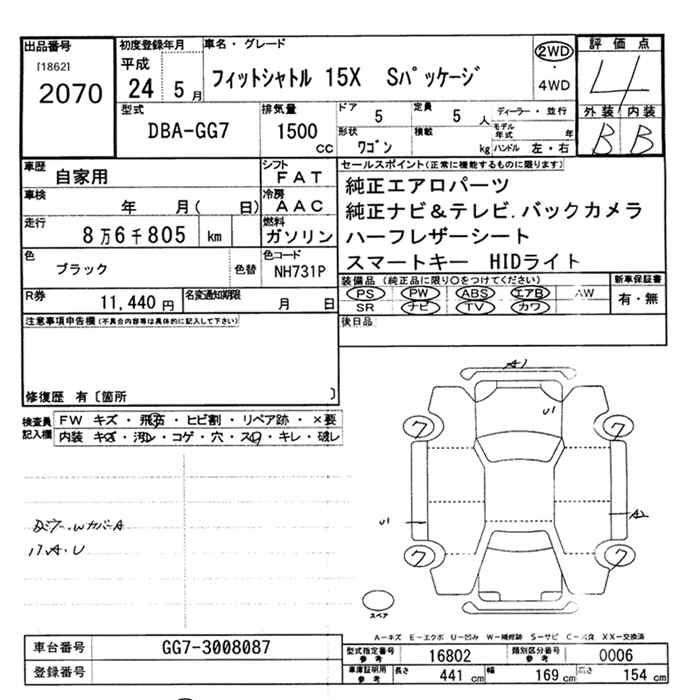 出品番号
[1862]
2070
初度登録年月
平成
24 5 月
車名・グレード
フィットシャトル 15X Sパッケージ
2WD
・
4WD
評価点
4
外装 内装
B B
型式
DBA-GG7
排気量
1500
CC
ドア
5
定員
5 人
ディーラー・並行
モデル年式 年
形状
ワゴン
積載
kg
ハンドル 左・右
車歴
自家用
シフト
FAT
車検
年 月( 日)
冷房
AAC
走行
8万6千805 km
燃料
ガソリン
色
ブラック
色替
色コード
NH731P
R券
11,440 円
名変通知期限
月 日
セールスポイント(正常に機能するものに限ります)
純正エアロパーツ
純正ナビ&テレビ.バックカメラ
ハーフレザーシート
スマートキー HIDライト
装備品(純正品に限り○をつけてください)
PS PW ABS エアB AW
SR ナビ TV カワ
新車保証書
有・無
後日品
注意事項申告欄(不具合内容等は具体的に記入して下さい)
修復歴 有〔箇所 〕
検査員記入欄
FW キズ・飛石・ヒビ割・リペア跡・×要
内装 キズ・汚レ・コゲ・穴・スレ・キレ・破レ
A1
U1
ワ ワ
U1
A2
ワ ワ
スペア
A−キズ E−エクボ U−凹み W−補修跡 S−サビ C−腐食 XX−交換済
車台番号
GG7-3008087
登録番号
型式指定番号
参考
16802
類別区分番号
参考
0006
車庫証明用
参考
長さ
441 cm
幅
169 cm
高さ
154 cm